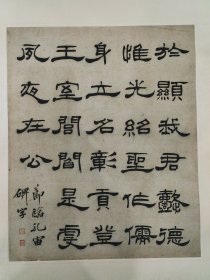 於顯我君懿德
惟光紹聖作儒
身立名彰貢登
王室閨閤是虔
夙夜在公
節臨孔宙
碑字